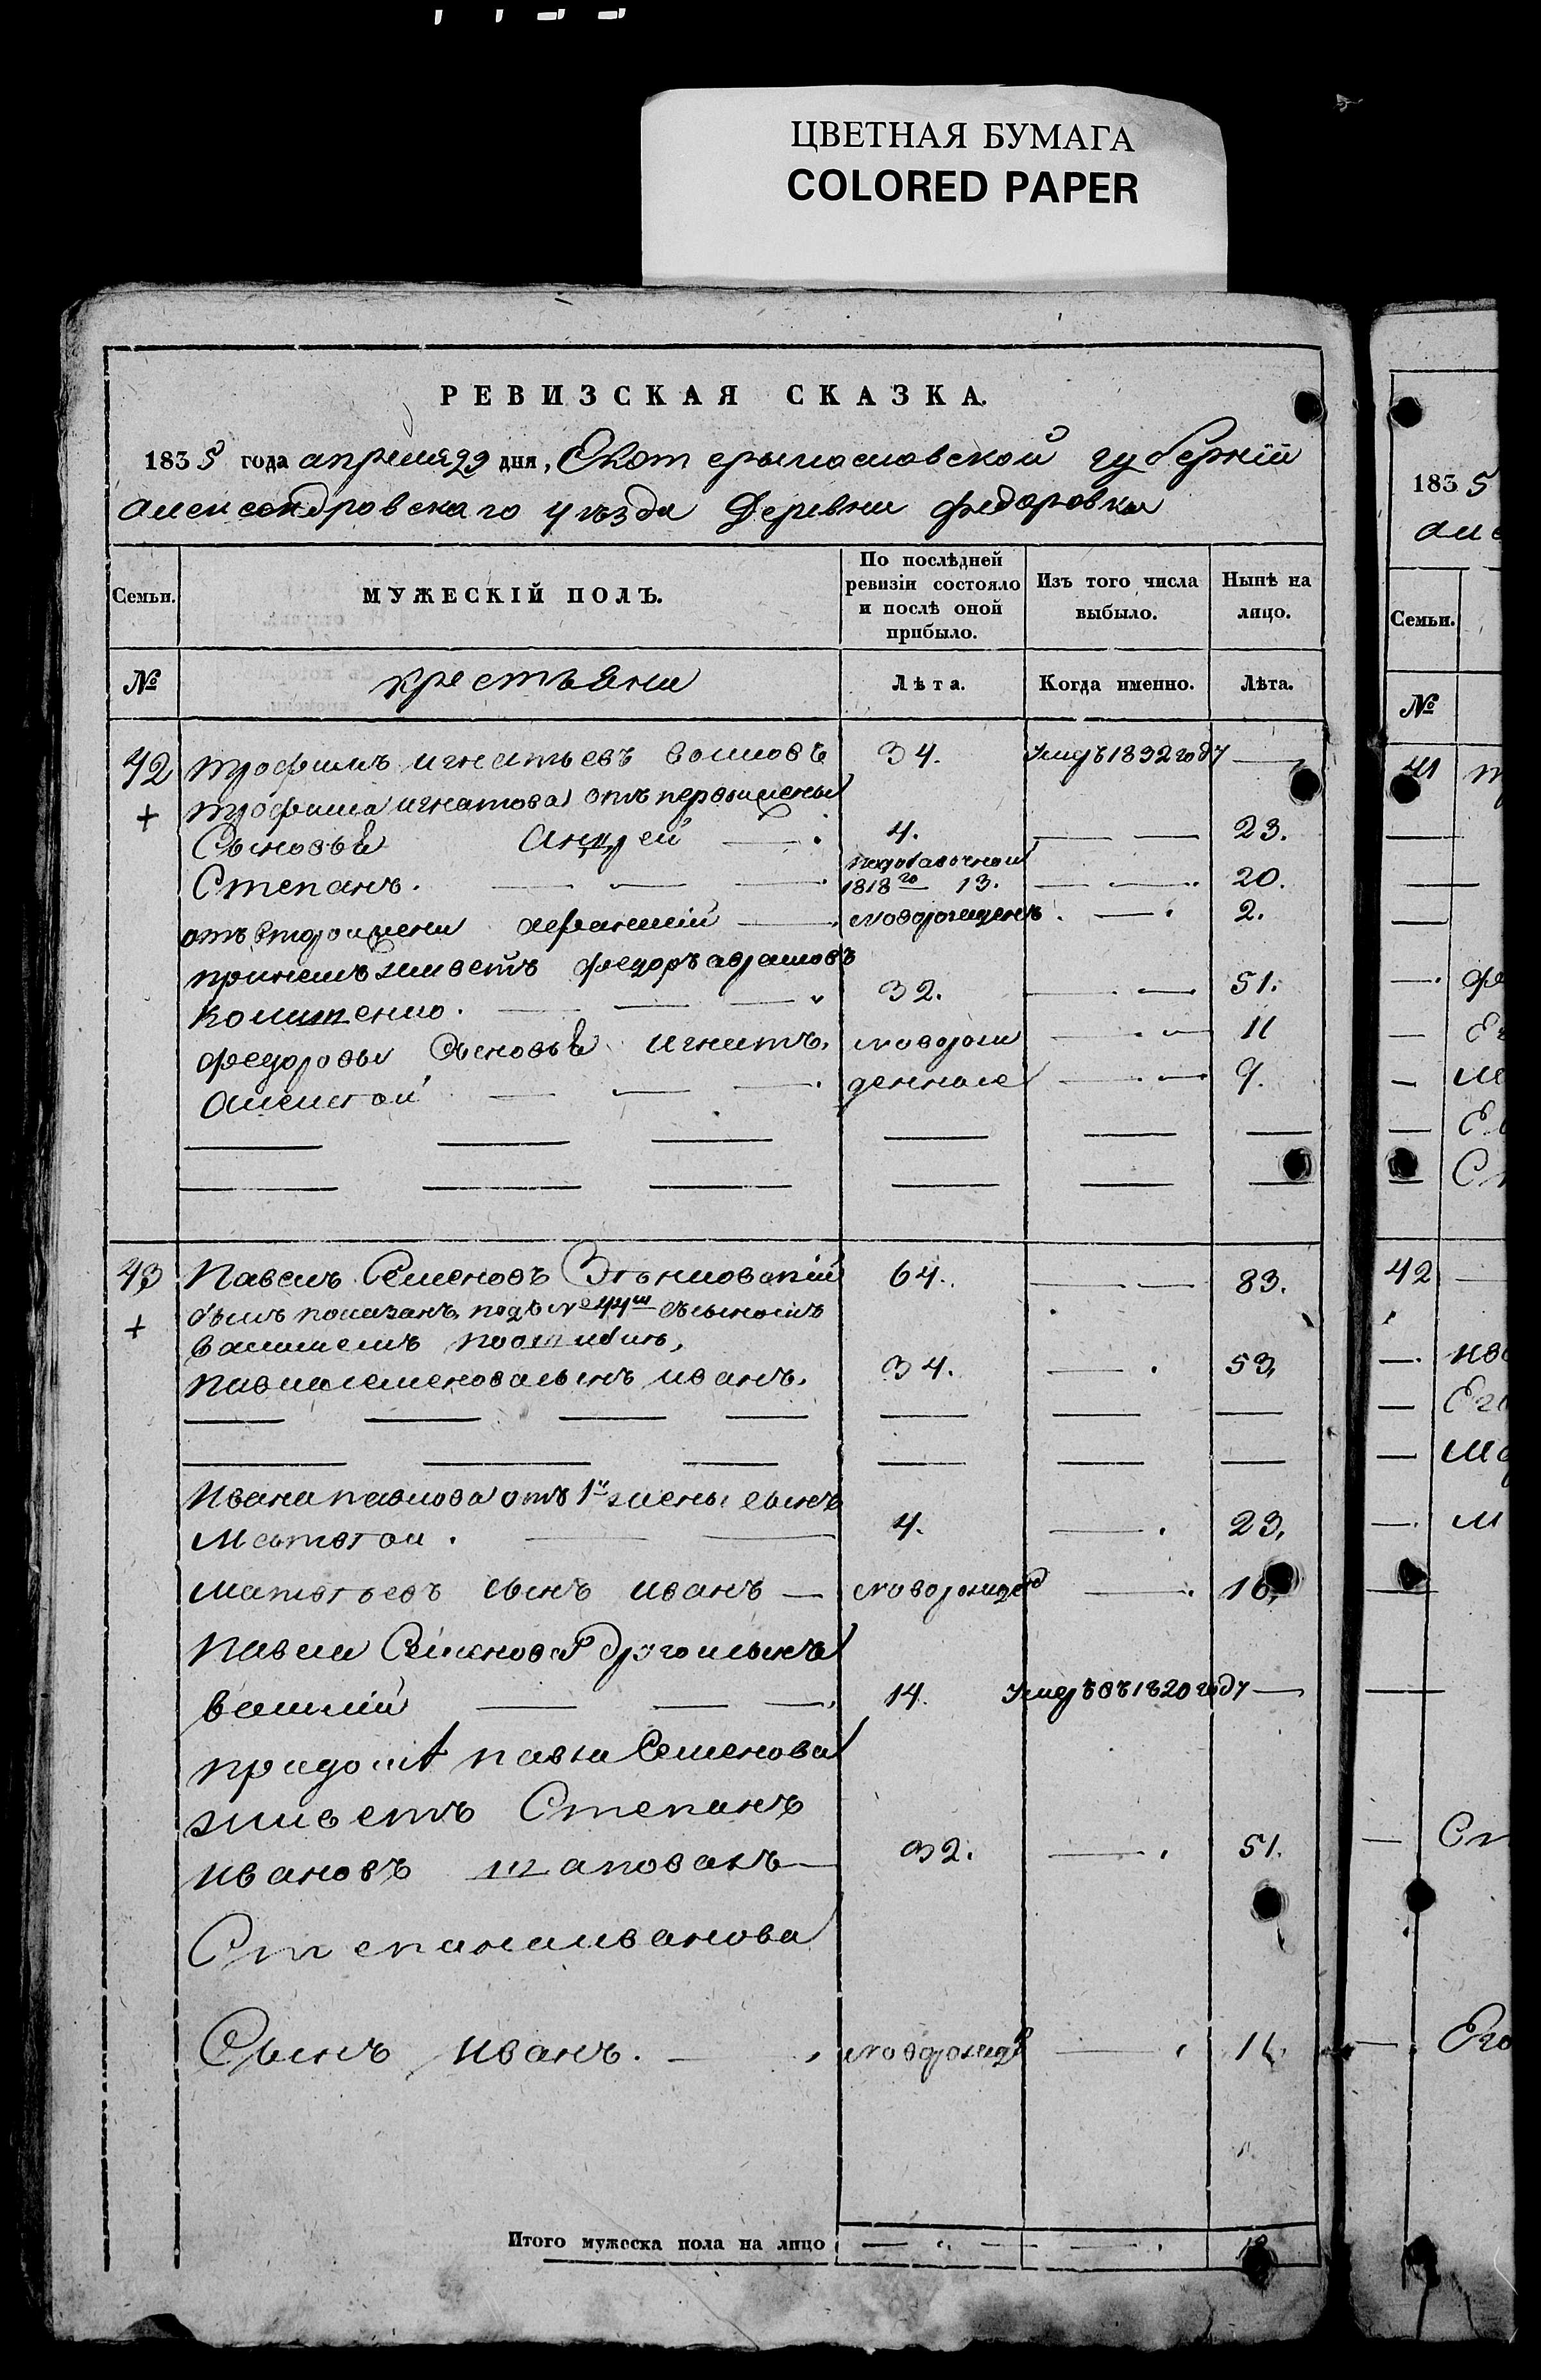 ЦВЕТНАЯ БУМАГА
COLORED PAPER
РЕВИЗСКАЯ СКАЗКА.
1835 года апреля 29 дня, Екатерынославской губернїй
Александровскаго уѣзда Деревни Федоровки
Семьи. МУЖЕСКІЙ ПОЛЪ. По послѣдней ревизіи состояло и послѣ оной прибыло. Изъ того числа выбыло. Нынѣ на лицо.
№ крестьяни Лѣта. Когда именно. Лѣта.
42 трофимъ игнатьевъ волковъ 34. Умеръ 1832 году
трофима игнатова отъ первы жены
Сыновья Андрей 4. 23.
Степанъ. 1818го 13. 20.
отъ второи жени афанасій новорожденъ 2.
принемъ живетъ федоръ аврамовъ
32. 51.
федоровы Сыновья игнатъ, новорож 11
Алексѣй денные 9.
43 Павелъ Семеновъ 64. 83.
былъ показанъ подъ №44м съсыномъ
павла семенова сынъ иванъ. 34. 53.
Ивана павлова отъ 1й жены сынъ
Матвѣй. 4. 23.
матвѣевъ сынъ иванъ новорожденъ 16.
Павла Семенова другой сынъ
василій 14. Умеръ въ 1820 году
придомѣ павла Семенова
живетъ Степанъ
ивановъ шаповалъ 32. 51.
Степана иванова
Сынъ иванъ. новорожд 11.
Итого мужеска пола на лицо
1835
Семьи.
№
41
42